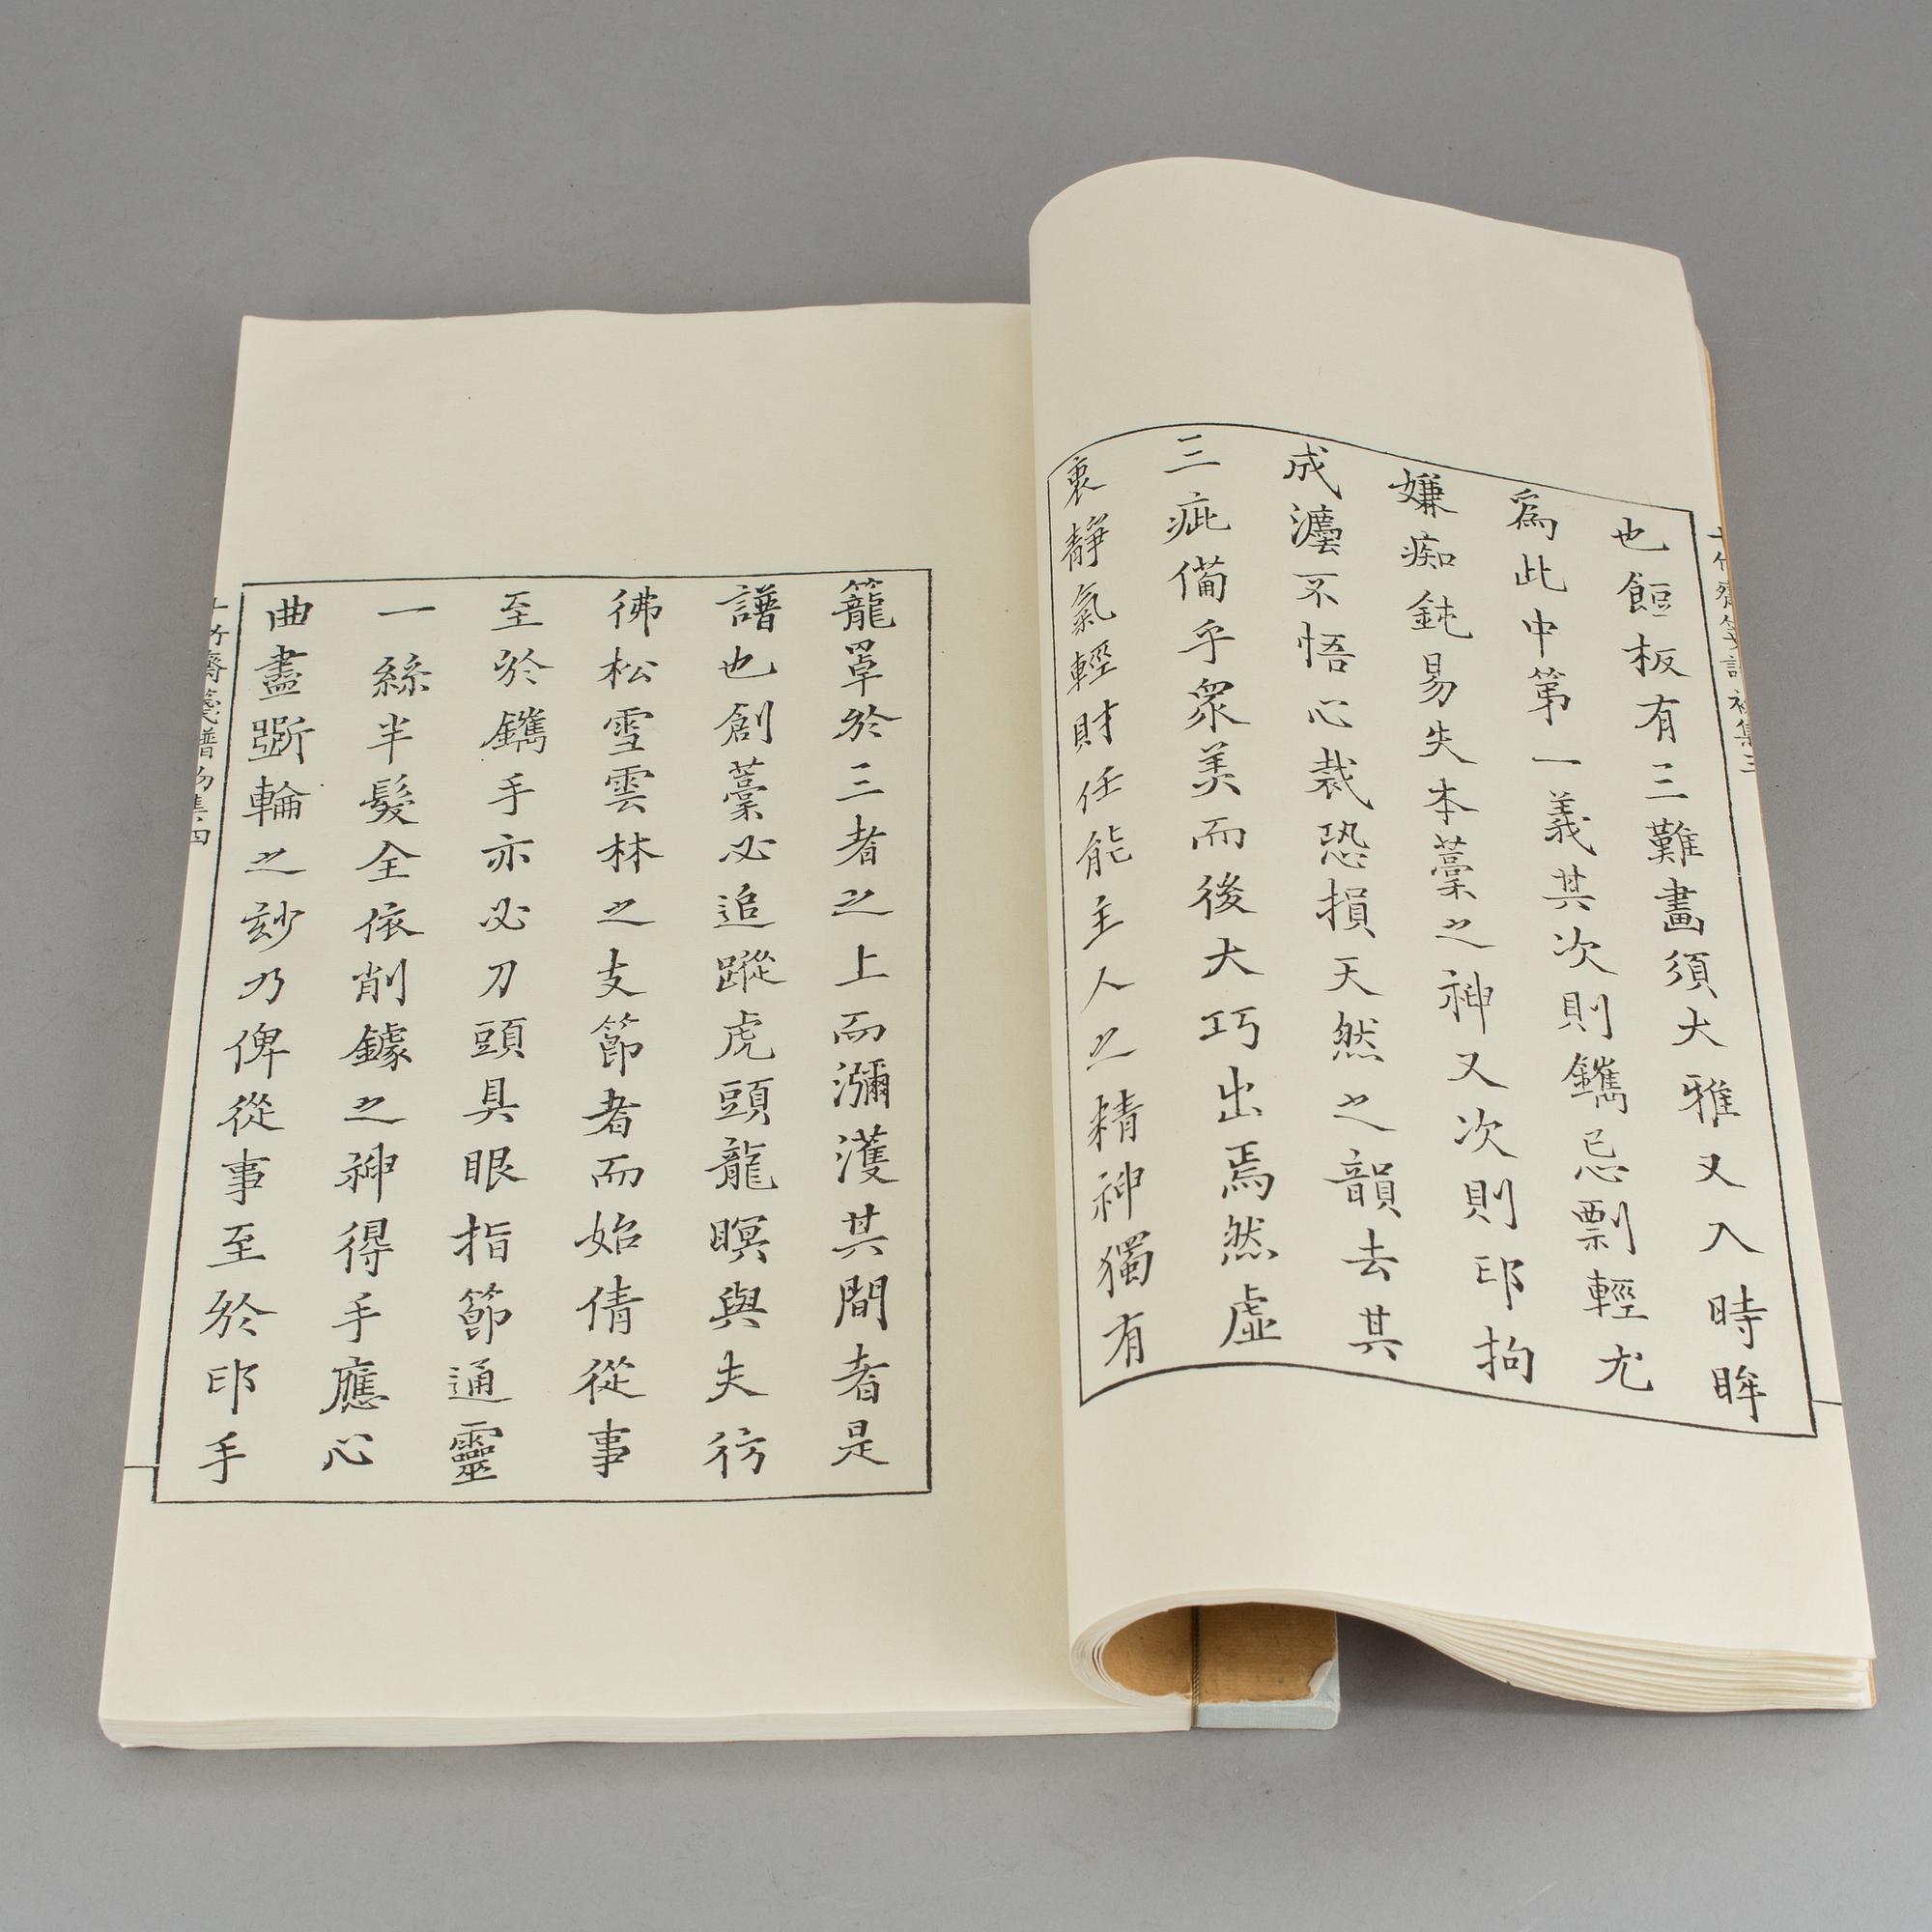 也餖板有三難畫須大雅又入時眸
爲此中第一義其次則鐫忌剽輕尤
嫌痴鈍易失本藁之神又次則印拘
成灋不悟心裁恐損天然之韻去其
三疵備乎衆美而後大巧出焉然虛
衷靜氣輕財任能主人之精神獨有
籠罩於三者之上而瀰濩其間者是
譜也創藁必追蹤虎頭龍暝與夫彷
彿松雪雲林之支節者而始倩從事
至於鐫手亦必刀頭具眼指節通靈
一絲半髮全依削鐻之神得手應心
曲盡斲輪之玅乃俾從事至於印手
十竹齋箋譜初集四